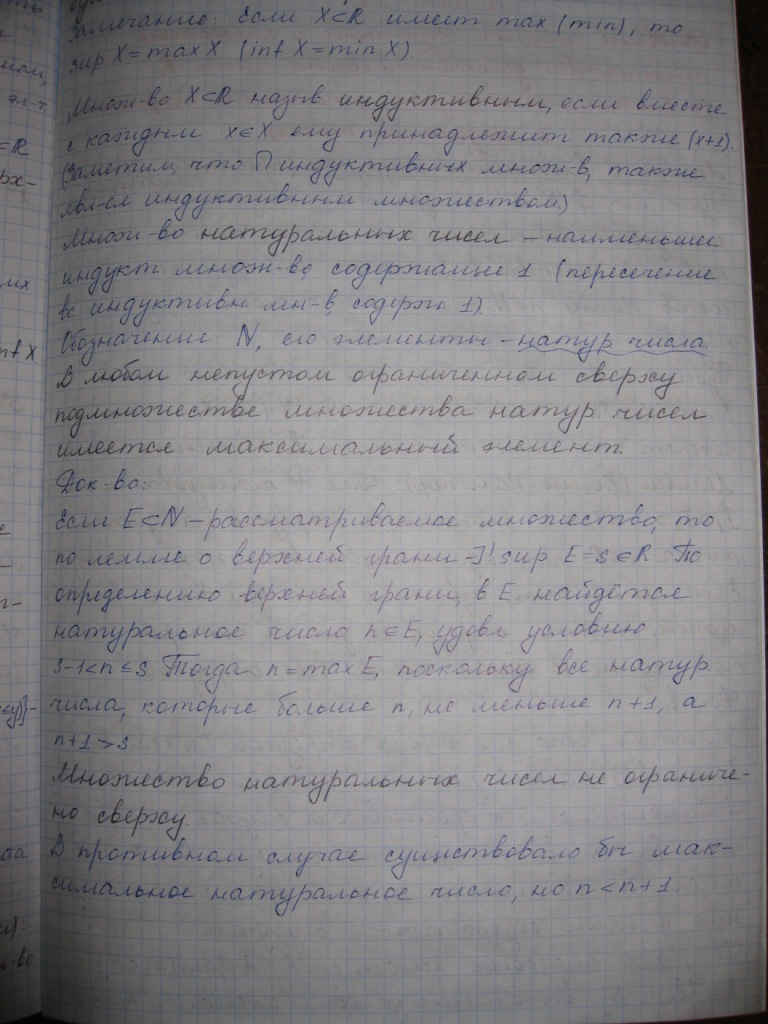 Замечание: Если X⊂R имеет max (min), то
sup X = max X (inf X = min X).
Множ-во X⊂R назыв индуктивным, если вместе
с каждым x∈X ему принадлежит также (x+1).
(Заметим, что ∩ индуктивных множ-в, также
явл-ся индуктивным множеством)
Множ-во натуральных чисел – наименьшее
индукт множ-во, содержащее 1 (пересечение
вс. индуктивн мн-в, содерж 1).
Обозначение: N, его элементы – натур числа.
В любом непустом ограниченном сверху
подмножестве множества натур чисел
имеется максимальный элемент.
Док-во:
Если E⊂N – рассматриваемое множество, то
по лемме о верхней грани ∃! sup E = s∈R. По
определению верхней грани, в E найдётся
натуральное число n∈E, удовл условию
s-1<n≤s. Тогда n = max E, поскольку все натур.
числа, которые больше n, не меньше n+1, а
n+1>s
Множество натуральных чисел не ограниче-
но сверху.
В противном случае существовало бы мак-
симальное натуральное число, но n<n+1.